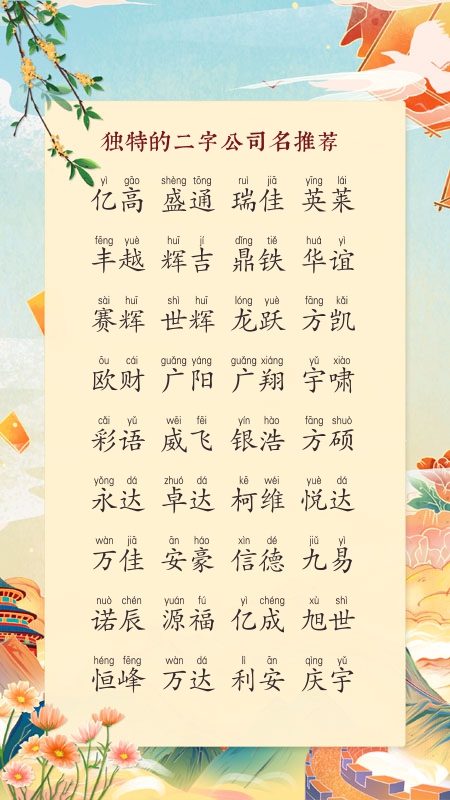 独特的二字公司名推荐
yì gāo shèng tōng ruì jiā yīng lái
亿高 盛通 瑞佳 英莱
fēng yuè huī jí dǐng tiě huá yì
丰越 辉吉 鼎铁 华谊
sài huī shì huī lóng yuè fāng kǎi
赛辉 世辉 龙跃 方凯
ōu cái guǎng yáng guǎng xiáng yǔ xiào
欧财 广阳 广翔 宇啸
cǎi yǔ wēi fēi yín hào fāng shuò
彩语 威飞 银浩 方硕
yǒng dá zhuó dá kē wéi yuè dá
永达 卓达 柯维 悦达
wàn jiā ān háo xìn dé jiǔ yì
万佳 安豪 信德 九易
nuò chén yuán fú yì chéng xù shì
诺辰 源福 亿成 旭世
héng fēng wàn dá lì ān qìng yǔ
恒峰 万达 利安 庆宇